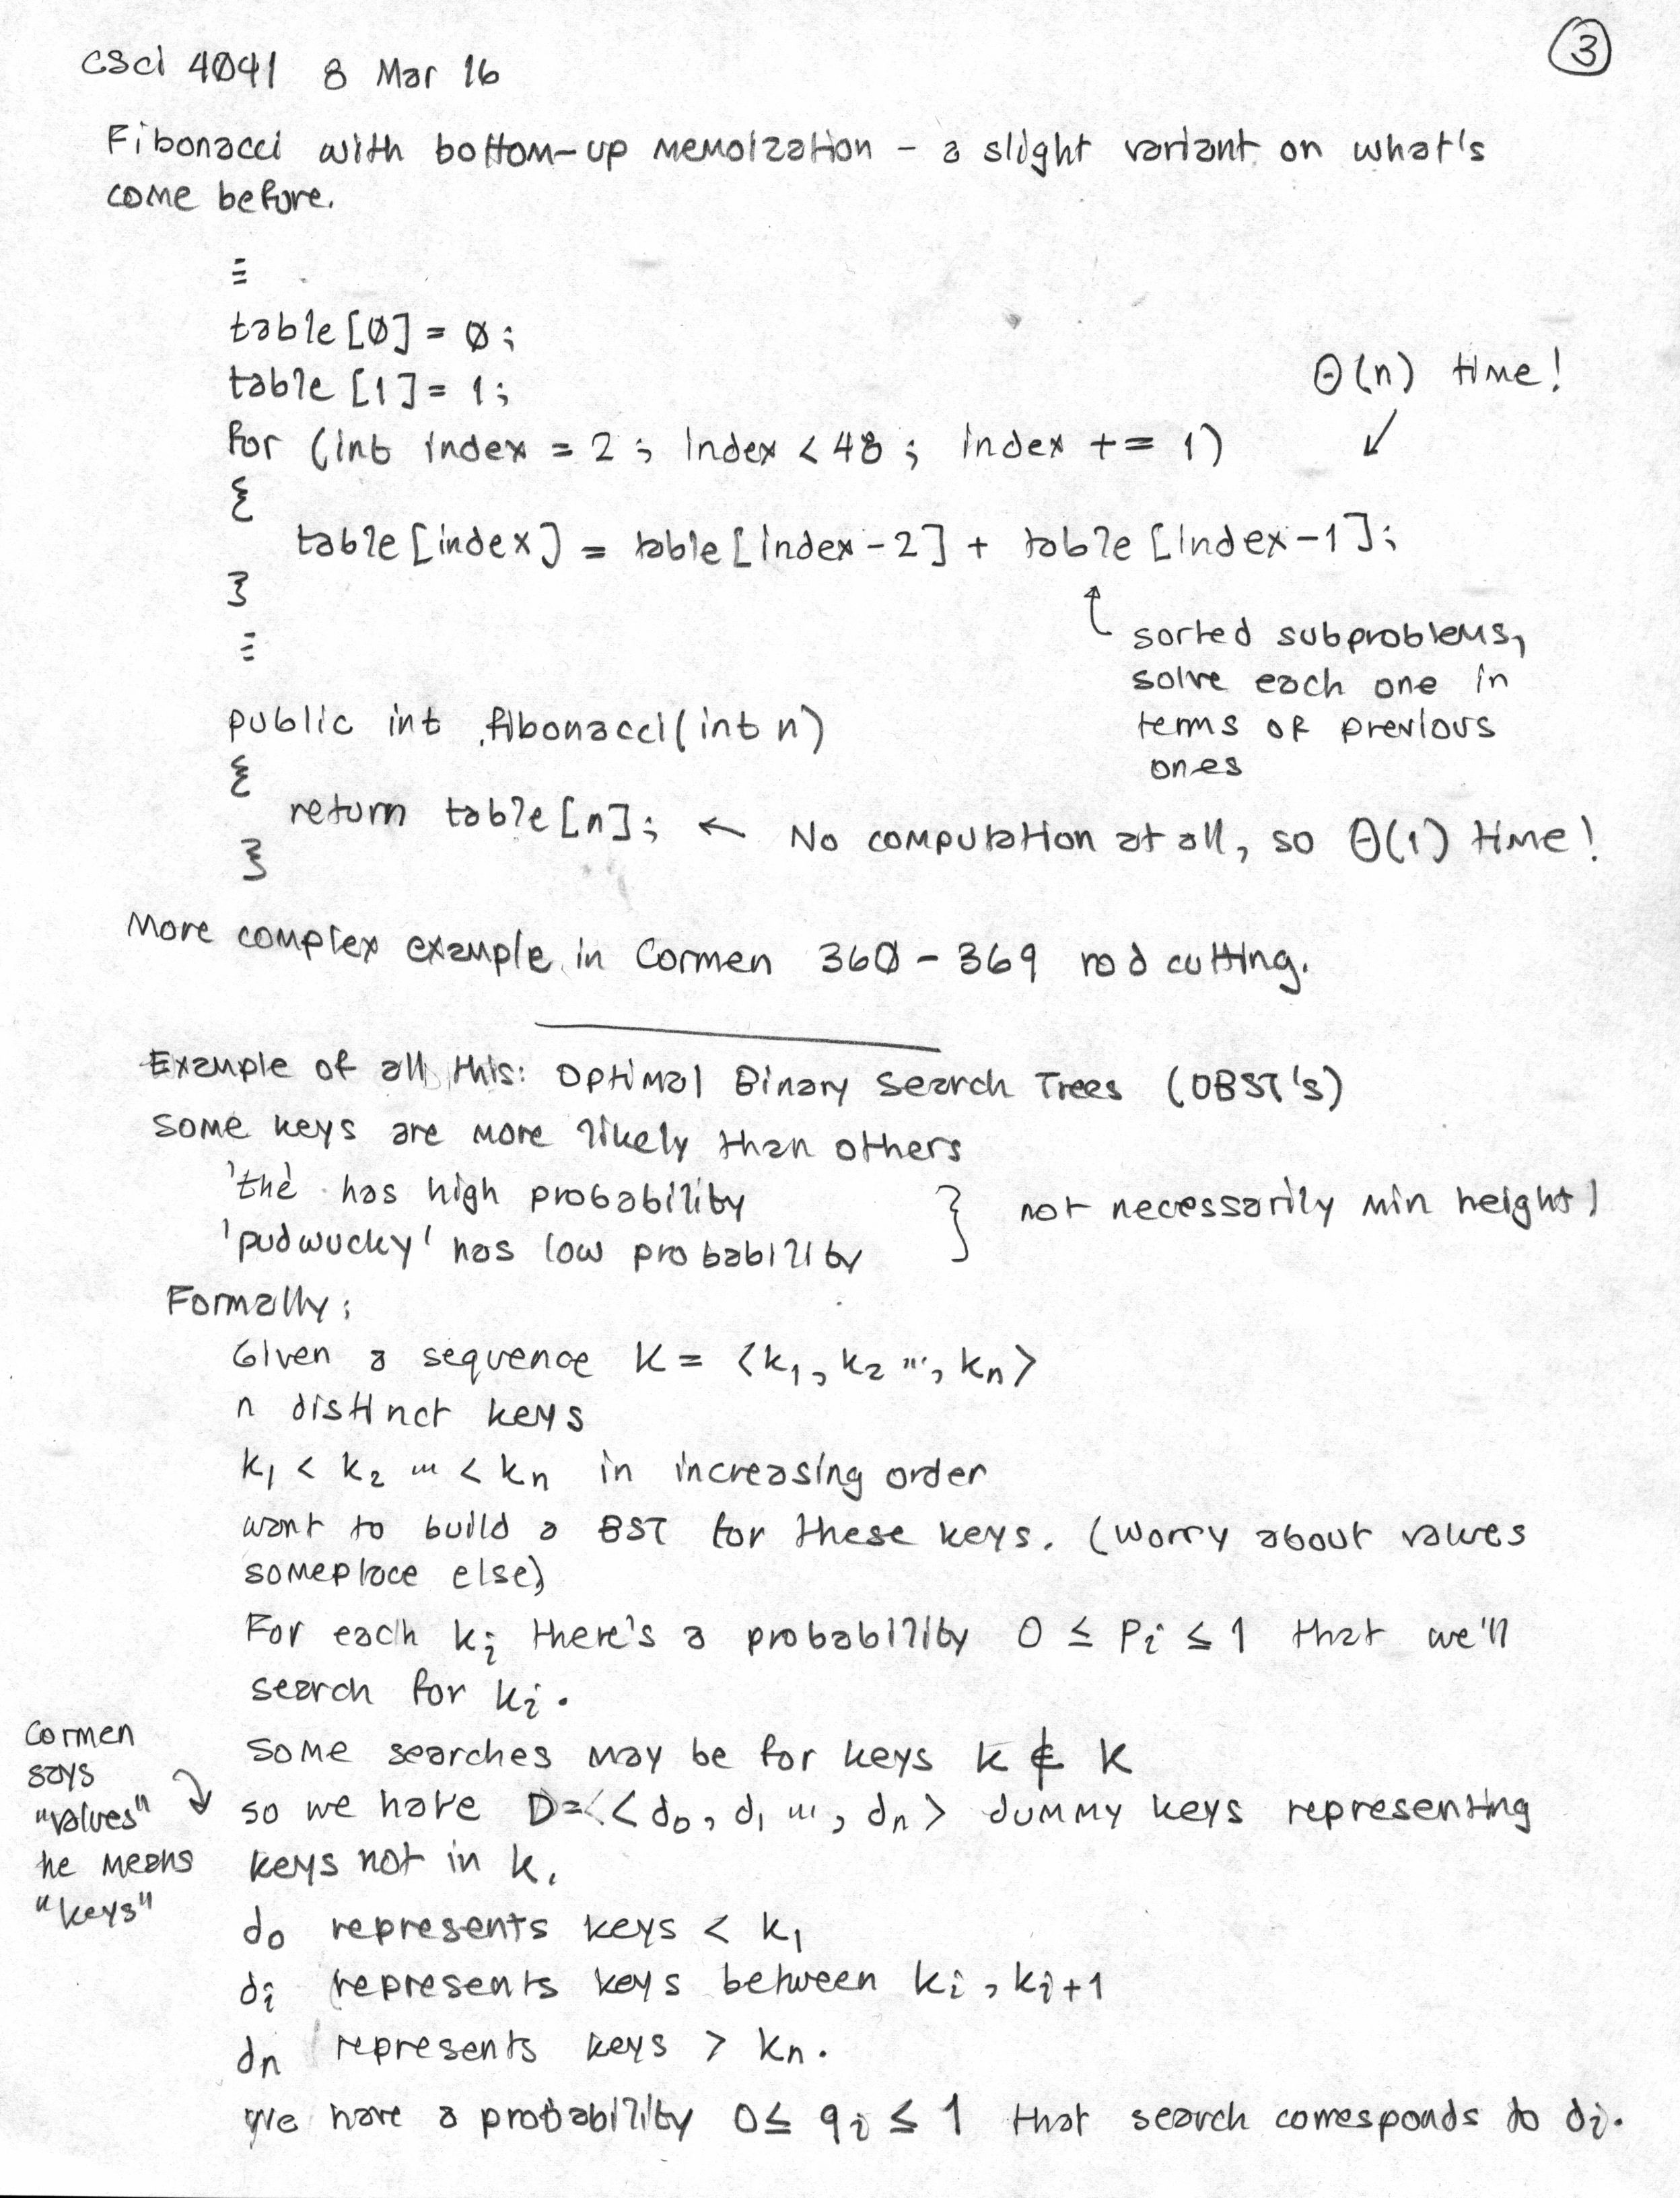 CSci 4041 8 Mar 16
3
Fibonacci with bottom-up memoization - a slight variant on what's
come before.
⋮
table [0] = 0;
table [1] = 1;
Θ(n) time!
for (int index = 2; index < 48; index += 1)
{
table [index] = table [index-2] + table [index-1];
}
↑ sorted subproblems,
⋮
solve each one in
terms of previous
ones
public int fibonacci(int n)
{
return table [n]; ← No computation at all, so Θ(1) time!
}
More complex example in Cormen 360-369 rod cutting.
Example of all this: Optimal Binary Search Trees (OBST's)
Some keys are more likely than others
'the' has high probability
'pudwucky' has low probability
} not necessarily min height!
Formally:
Given a sequence K = ⟨k₁, k₂ ..., kₙ⟩
n distinct keys
k₁ < k₂ ... < kₙ in increasing order
want to build a BST for these keys. (Worry about values
someplace else)
For each kᵢ there's a probability 0 ≤ Pᵢ ≤ 1 that we'll
search for kᵢ.
Some searches may be for keys k ∉ K
Cormen
says
"values"
he means
"keys"
so we have D = ⟨d₀, d₁ ..., dₙ⟩ dummy keys representing
keys not in k.
d₀ represents keys < k₁
dᵢ represents keys between kᵢ, kᵢ+1
dₙ represents keys > kₙ.
We have a probability 0 ≤ qᵢ ≤ 1 that search corresponds to dᵢ.